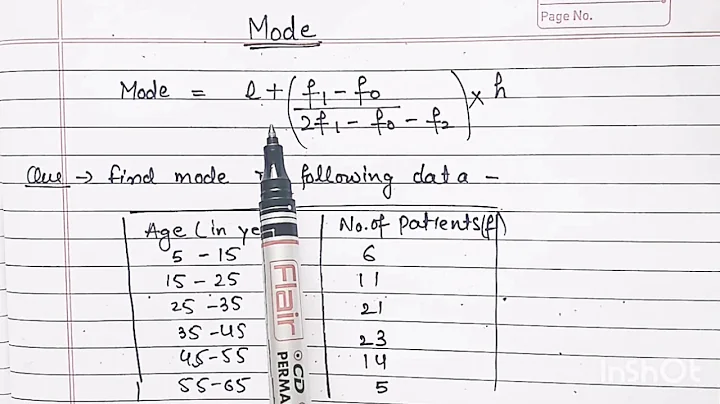 Page No.
Mode
Mode = l + ( f1 - f0 / 2f1 - f0 - f2 ) × h
Que → find mode following data -
Age (in ye No. of Patients (f)
5 - 15 6
15 - 25 11
25 - 35 21
35 - 45 23
45 - 55 14
55 - 65 5
Flair
CD
PERMA
InShOt